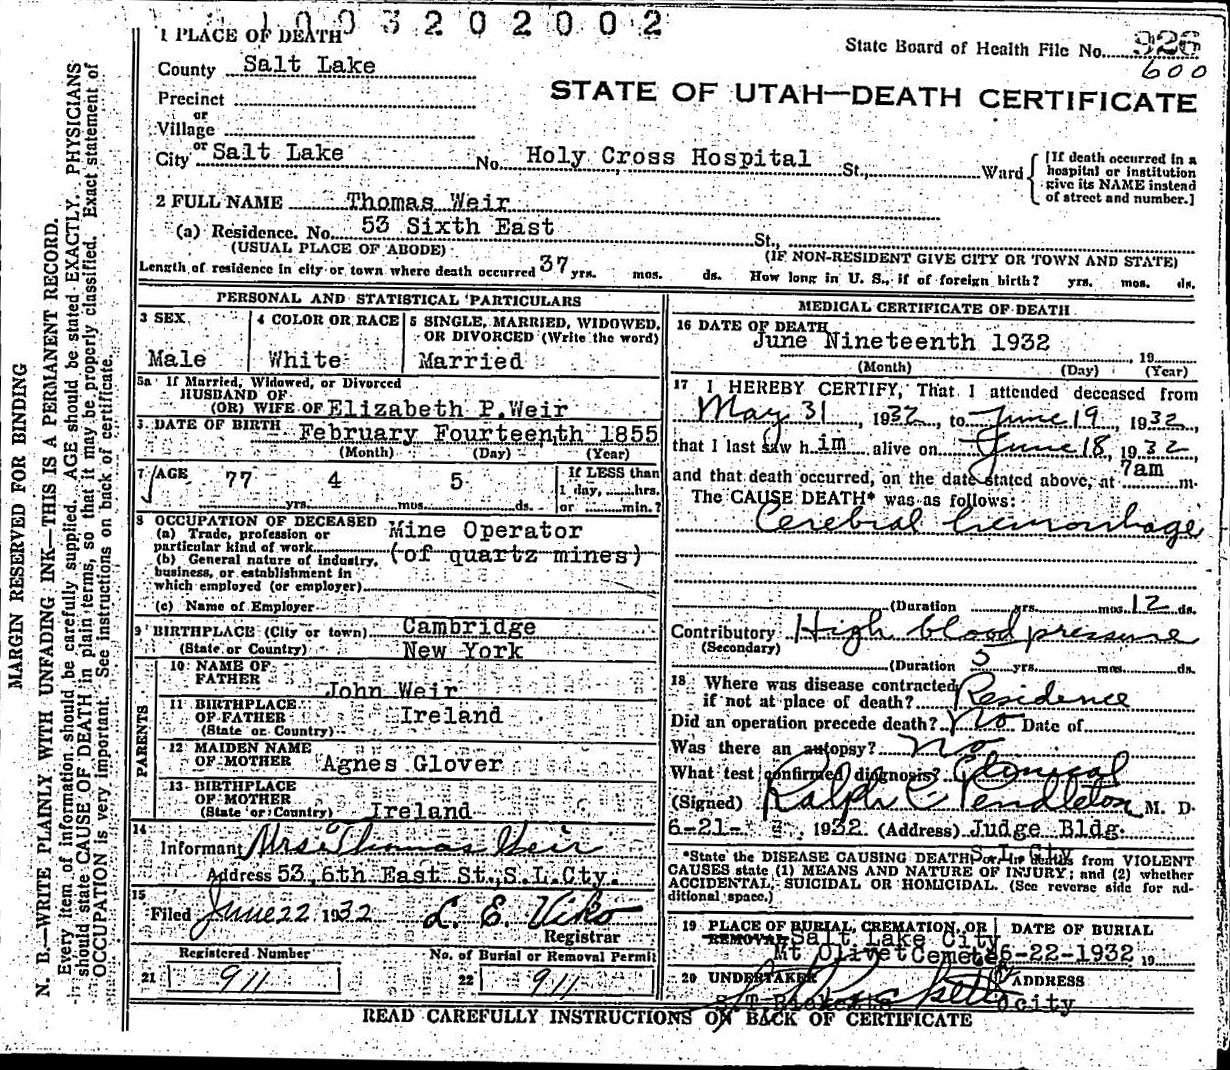 1003202002
1 PLACE OF DEATH
State Board of Health File No. 926
600
County Salt Lake
STATE OF UTAH—DEATH CERTIFICATE
Precinct
or
Village
or
City Salt Lake No. Holy Cross Hospital St., Ward
[If death occurred in a hospital or institution give its NAME instead of street and number.]
2 FULL NAME Thomas Weir
(a) Residence. No. 53 Sixth East St.,
(USUAL PLACE OF ABODE) (IF NON-RESIDENT GIVE CITY OR TOWN AND STATE)
Length of residence in city or town where death occurred 37 yrs. mos. ds. How long in U. S., if of foreign birth? yrs. mos. ds.
PERSONAL AND STATISTICAL PARTICULARS
3 SEX
Male
4 COLOR OR RACE
White
5 SINGLE, MARRIED, WIDOWED,
OR DIVORCED (Write the word)
Married
5a If Married, Widowed, or Divorced
HUSBAND OF
(OR) WIFE OF Elizabeth P. Weir
DATE OF BIRTH February Fourteenth 1855
(Month) (Day) (Year)
7 AGE 77 4 5
yrs. mos. ds.
If LESS than
1 day, hrs.
or min.?
8 OCCUPATION OF DECEASED
(a) Trade, profession or
particular kind of work Mine Operator
(b) General nature of industry, (of quartz mines)
business, or establishment in
which employed (or employer)
(c) Name of Employer
9 BIRTHPLACE (City or town) Cambridge
(State or Country) New York
PARENTS
10 NAME OF
FATHER John Weir
11 BIRTHPLACE
OF FATHER Ireland
(State or Country)
12 MAIDEN NAME
OF MOTHER Agnes Glover
13 BIRTHPLACE
OF MOTHER
(State or Country) Ireland
14
Informant Mrs Thomas Weir
Address 53, 6th East St., S.L.Cty.
15
Filed June 22 1932 L. E. Viko
Registrar
Registered Number
21 911
No. of Burial or Removal Permit
22 911
MEDICAL CERTIFICATE OF DEATH
16 DATE OF DEATH
June Nineteenth 1932
, 19
(Month) (Day) (Year)
17 I HEREBY CERTIFY, That I attended deceased from
May 31, 1932, to June 19, 1932,
that I last saw him alive on June 18, 1932,
and that death occurred, on the date stated above, at 7am m.
The CAUSE DEATH* was as follows:
Cerebral hemorrhage
(Duration yrs. mos. 12 ds.
Contributory High blood pressure
(Secondary)
(Duration 5 yrs. mos. ds.
18 Where was disease contracted
if not at place of death? Residence
Did an operation precede death? No Date of
Was there an autopsy? No
What test confirmed diagnosis? Clinical
(Signed) Ralph C Pendleton M. D.
6-21- , 1932 (Address) Judge Bldg.
S.L.City
*State the DISEASE CAUSING DEATH, or in deaths from VIOLENT
CAUSES state (1) MEANS AND NATURE OF INJURY; and (2) whether
ACCIDENTAL, SUICIDAL OR HOMICIDAL. (See reverse side for additional space.)
19 PLACE OF BURIAL, CREMATION, OR
REMOVAL Salt Lake City
Mt Olivet Cemete
DATE OF BURIAL
6-22-1932 19
20 UNDERTAKER
ADDRESS
city
READ CAREFULLY INSTRUCTIONS ON BACK OF CERTIFICATE
MARGIN RESERVED FOR BINDING
N. B.—WRITE PLAINLY WITH UNFADING INK—THIS IS A PERMANENT RECORD.
Every item of information should be carefully supplied. AGE should be stated EXACTLY. PHYSICIANS
should state CAUSE OF DEATH in plain terms, so that it may be properly classified. Exact statement of
OCCUPATION is very important. See instructions on back of certificate.